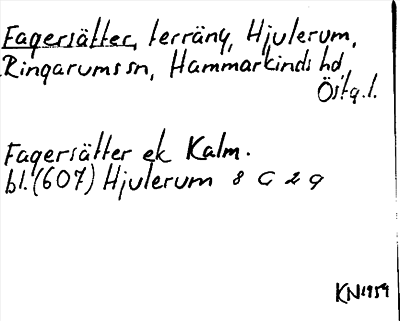 Fagersätter, terräng, Hjulerum,
Ringarums sn, Hammarkinds hd,
Östg.l.
Fagersätter ek Kalm.
bl. (607) Hjulerum 8 G 2 g
KN 1959